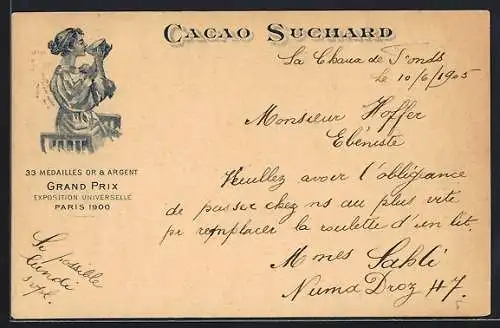 CACAO SUCHARD
La Chaux de Fonds
le 10/6/1905
Monsieur Hoffer
Ebéniste
Veuillez avoir l'obligeance
de passer chez ns au plus vite
pr remplacer la roulette d'un lit.
Mmes Sahli
Numa Droz 47.
33 MÉDAILLES OR & ARGENT
GRAND PRIX
EXPOSITION UNIVERSELLE
PARIS 1900
Si possible
lundi
s.v.pl.